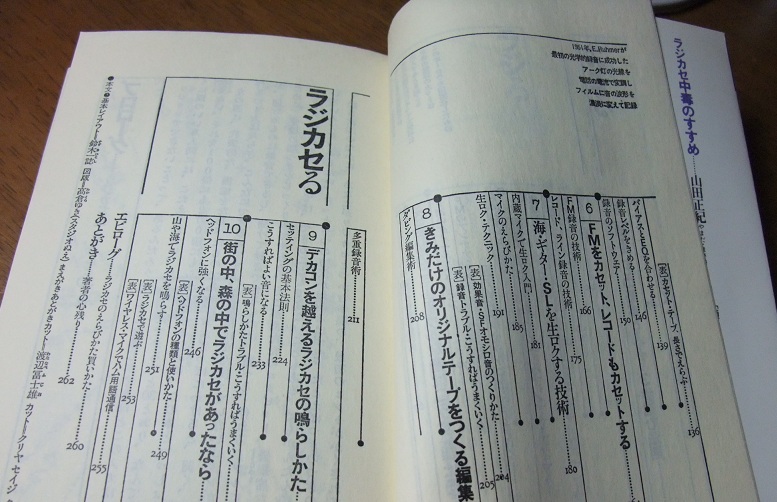 ラジカセ中毒のすすめ……山田正紀
1951年、E.Ruhmerが
最初の光学的録音に成功した
アーク灯の光線を
電話の電流で変調し
フィルムに音の波形を
濃淡に変えて記録
[表]カセット・テープ、長さでえらぶ……136
バイアス・EQを合わせる……139
録音レベルをきめる……146
録音のソフトウェア……150
6 FMをカセット、レコードもカセットする
FM録音の技術……166
レコード、ライン録音の技術……175
7 海・ギター・SLを生ロクする技術……180
内蔵マイクで生ロク入門……181
マイクのえらびかた……185
生ロク・テクニック……191
[表]効果音・SFオモシロ音のつくりかた……204
[表]録音・トラブル・こうすればうまくいく……205
8 きみだけのオリジナルテープをつくる編集
ダビング編集術……208
多重録音術……211
ラジカセる
9 デカコンを越えるラジカセの鳴らしかた
セッティングの基本法則……224
こうすればよい音になる……233
[表]鳴らしかたトラブル・こうすればうまくいく
10 街の中・森の中でラジカセがあったなら
ヘッドフォンに強くなる……246
[表]ヘッドフォンの種類と使いかた……249
山や海でラジカセを鳴らす……251
[表]ラジカセで遊ぶ……253
[表]ワイヤレス・マイクでハム用語通信……255
エピローグ……ラジカセのえらびかた買いかた……260
あとがき……著者の心残り……262
●本文・基本レイアウト―鈴木一誌 図版―高倉ゆり(スタジオぬえ) まえがきあとがきカット―渡辺冨士雄 カット―クリヤセイジ